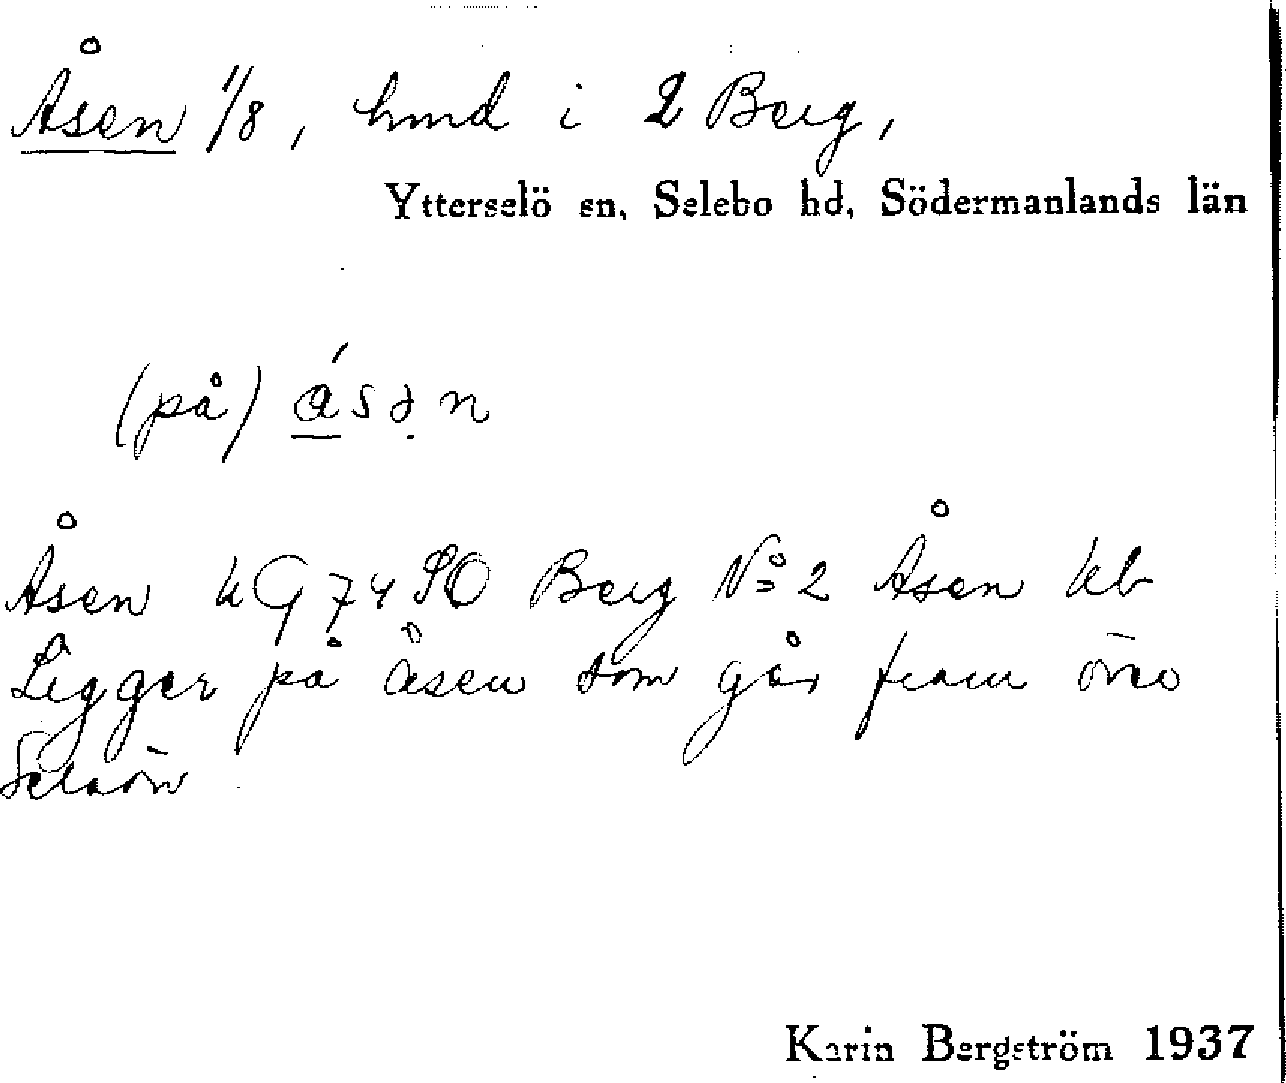 Åsen 1/8, hmd i 2 Berg,
Ytterselö sn, Selebo hd, Södermanlands län
(på) åsən
Åsen kG 74 SO Berg No 2 Åsen kb
Ligger på åsen som går fram över
Selaön
Karin Bergström 1937